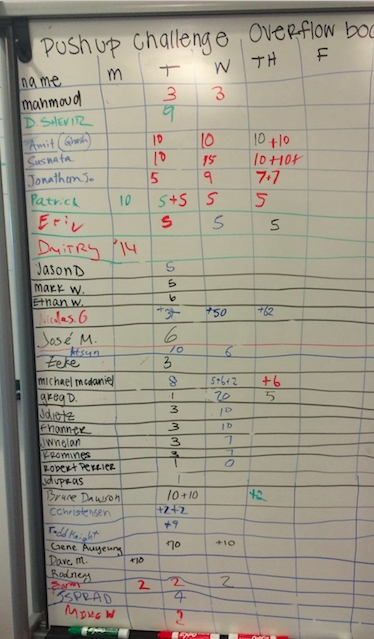 Pushup Challenge Overflow boa
name M T W TH F
mahmoud 3 3
D. Shevitz 9
Amit (Ghosh) 10 10 10+10
Susnata 10 15 10+10+
Jonathon Jo. 5 9 7+7
Patrick 10 5+5 5 5
Eric 5 5 5
Dmitry '14
Jason D 5
Mark W. 5
Ethan W. 6
Nicolas.G +50 +62
José M. 6
Atsyn 10 6
Zeke 3
michael mcdaniel 8 5+6+2 +6
greg D. 1 20 5
Jdietz 3 10
Fhanner 3 10
Jwhelan 3 7
Kromines 3 7
Robert Perrier 1 0
jdupras 1
Bruce Dawson 10+10 +2
CChristensen +2+2
Todd Height +9
Gene Auyeung 70 +10
Dave M. +10
Rodney
2 2 2
JSPRAD 4
2